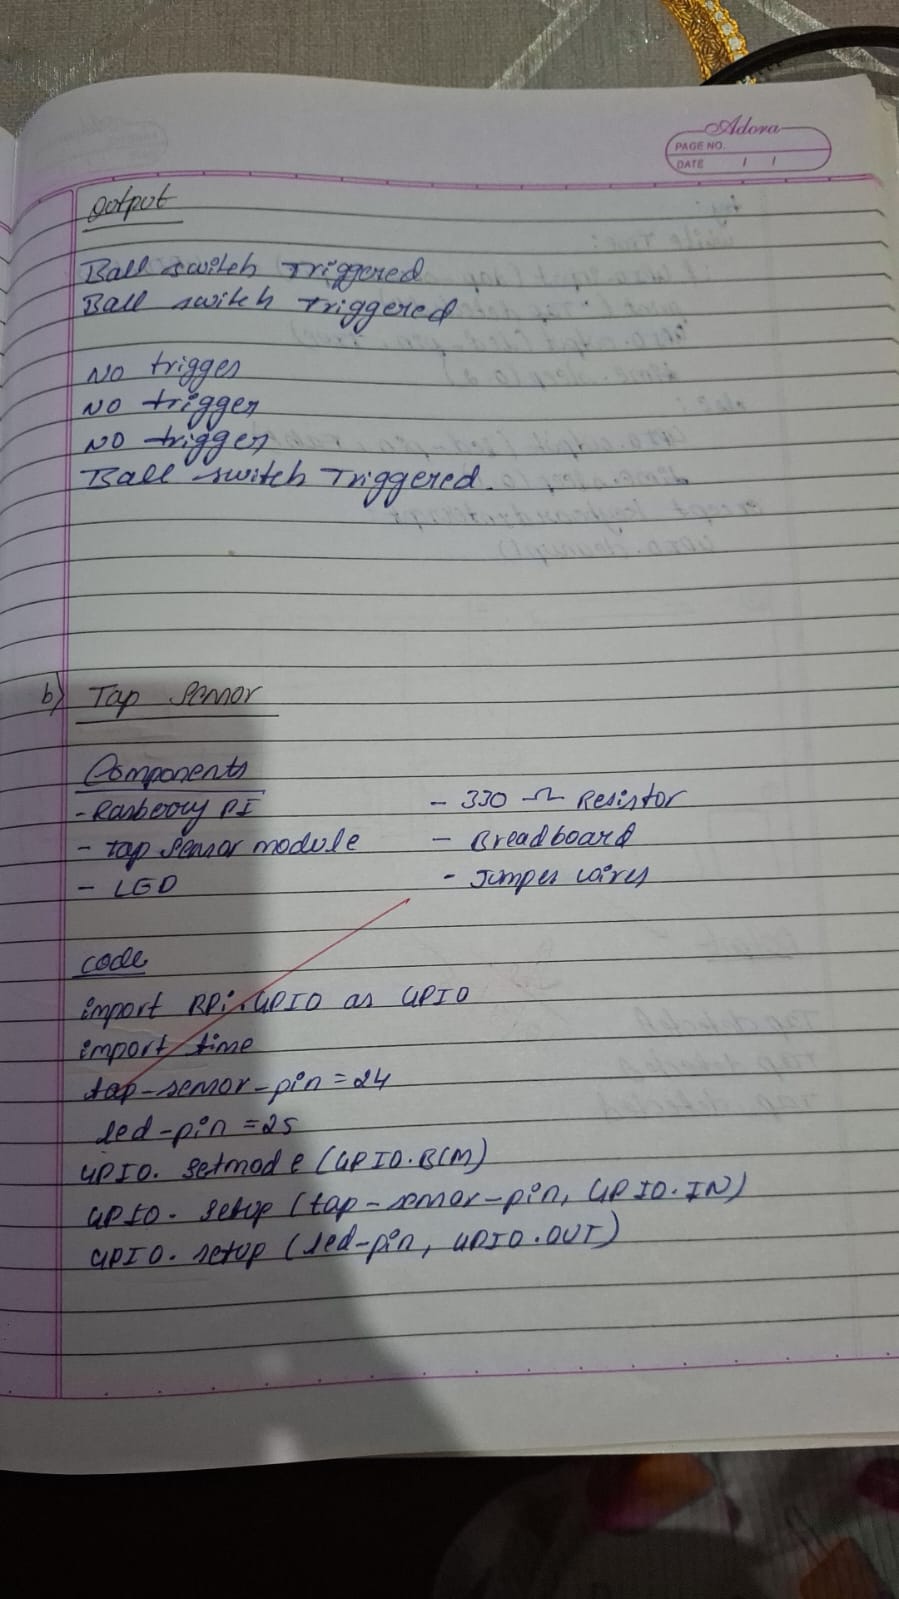 Adora
PAGE NO.
DATE / /
Output
Ball switch Triggered
Ball switch Triggered
NO trigger
NO trigger
NO trigger
Ball switch Triggered.
b) Tap Sensor
Components
- Rasberry PI
- 330 Ω Resistor
- tap sensor module
- Breadboard
- LED
- Jumper wires
code
import RPi.GPIO as GPIO
import time
tap-sensor-pin = 24
led-pin = 25
GPIO. setmode (GPIO.BCM)
GPIO. setup (tap-sensor-pin, GPIO.IN)
GPIO. setup (led-pin, GPIO.OUT)